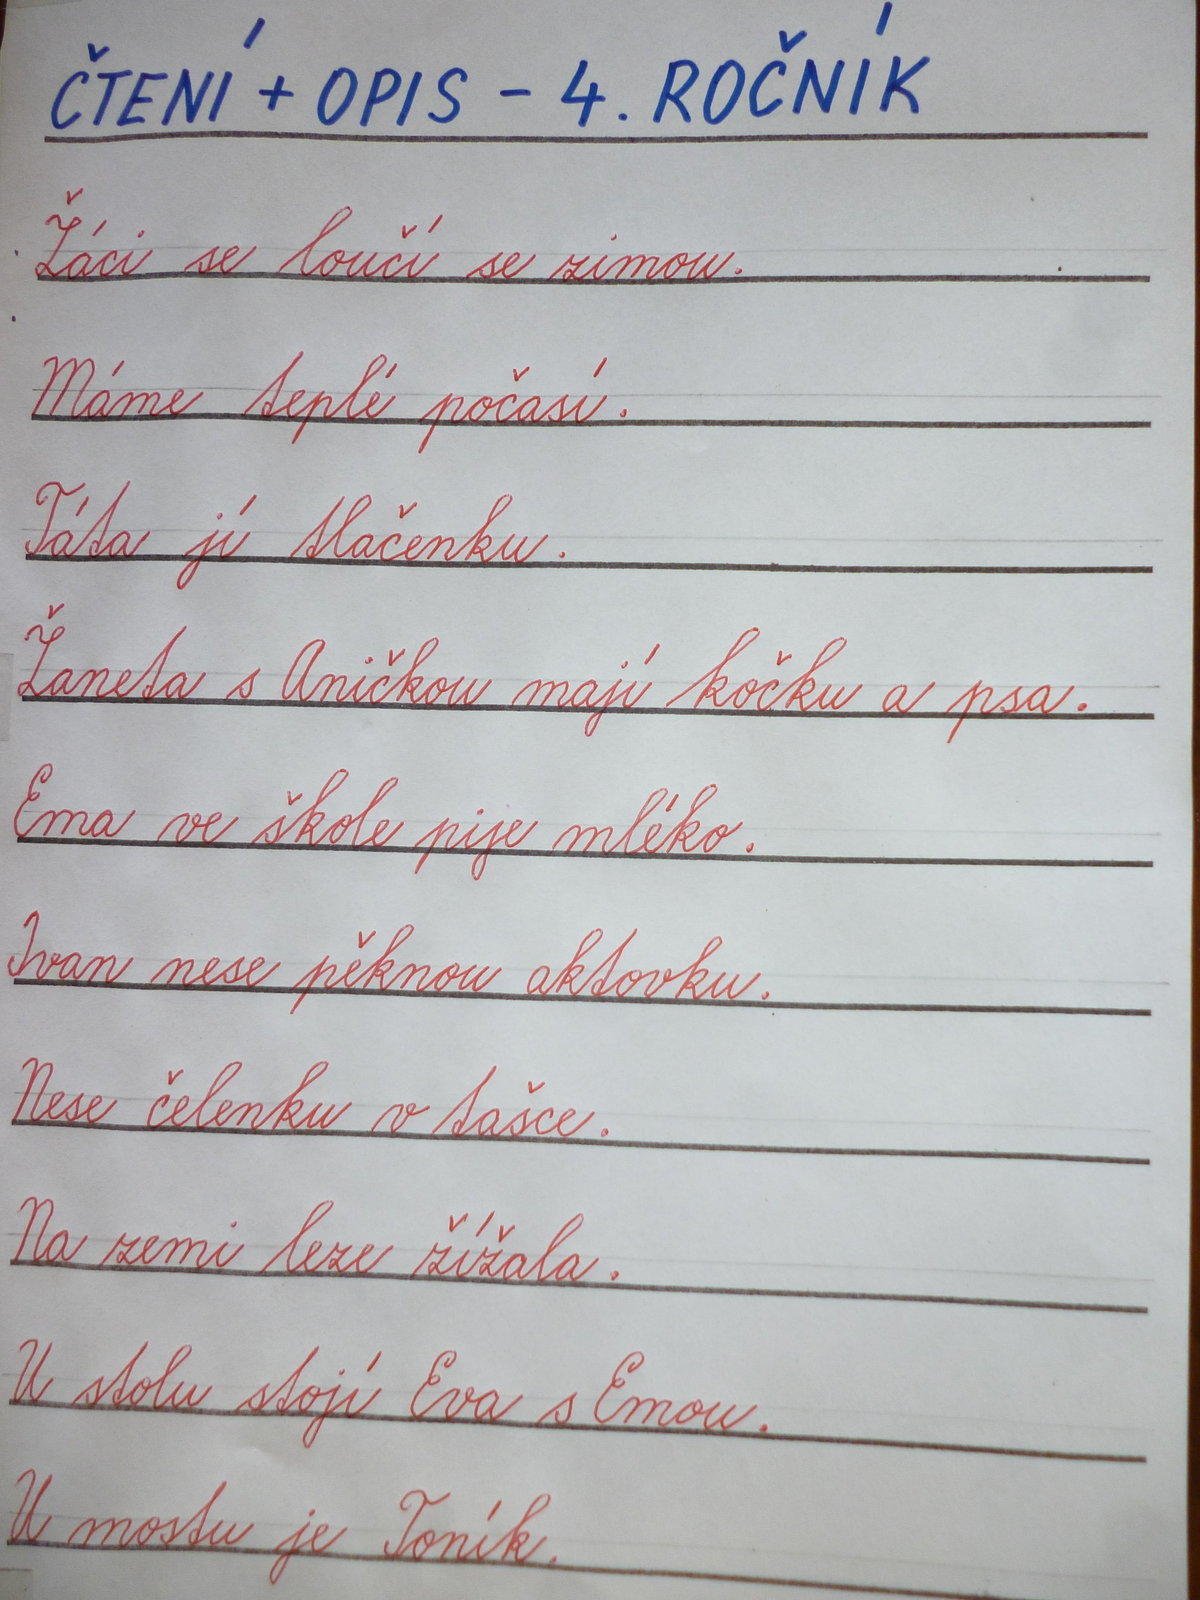 ČTENÍ + OPIS - 4. ROČNÍK
Žáci se loučí se zimou.
Máme teplé počasí.
Táta jí tlačenku.
Žaneta s Aničkou mají kočku a psa.
Ema ve škole pije mléko.
Ivan nese pěknou aktovku.
Nese čelenku v tašce.
Na zemi leze žížala.
U stolu stojí Eva s Emou.
U mostu je Toník.